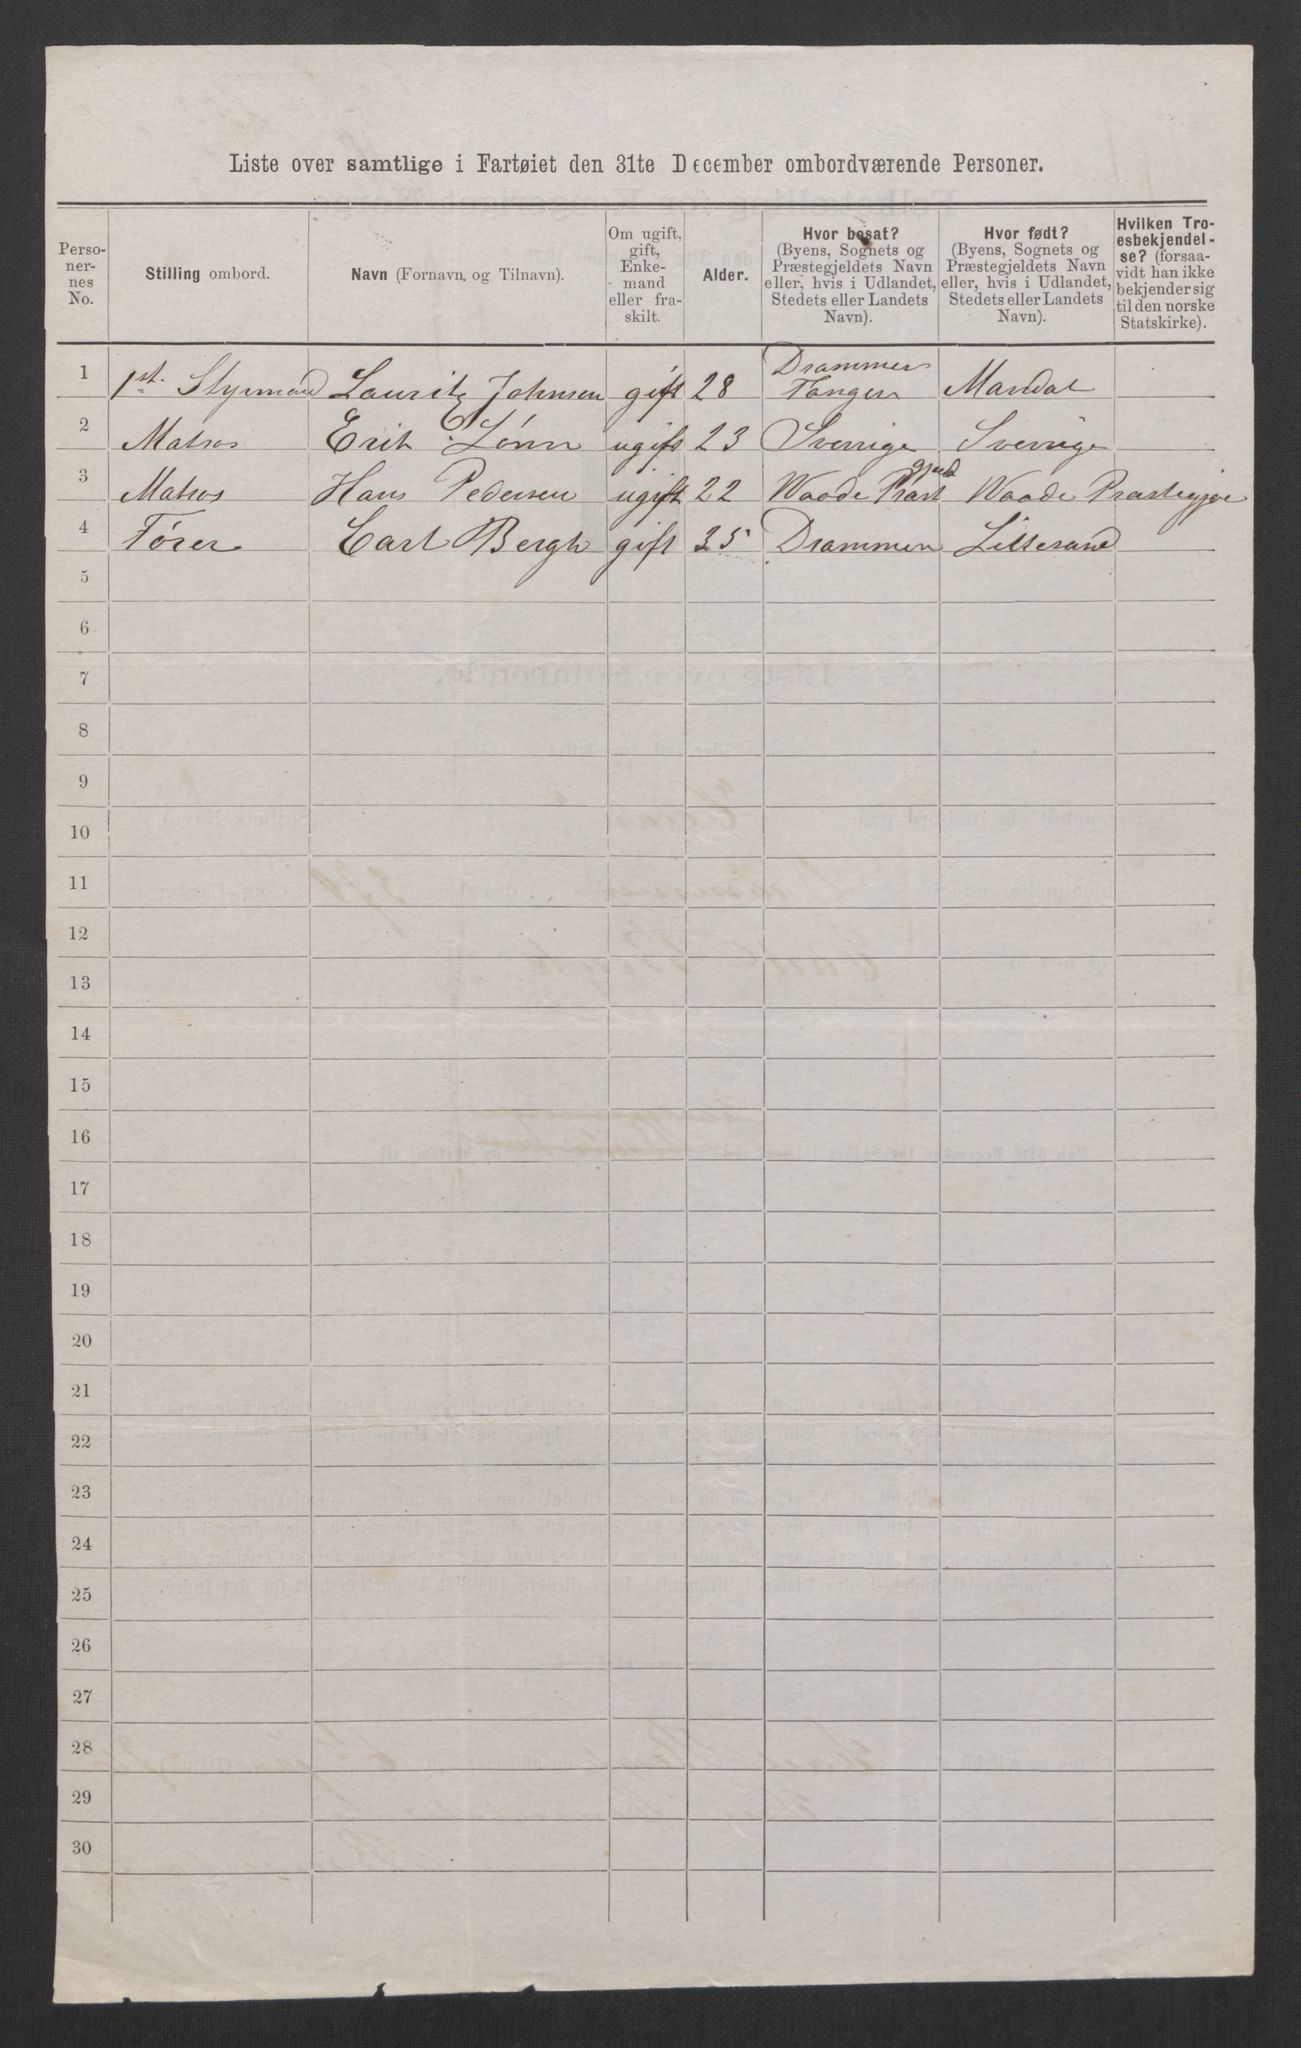 Liste over samtlige i Fartøiet den 31te December ombordværende Personer.
Perso-
ner-
nes
No.
Stilling ombord.
Navn (Fornavn, og Tilnavn).
Om ugift,
gift,
Enke-
mand
eller fra-
skilt.
Alder.
Hvor bosat?
(Byens, Sognets og
Præstegjeldets Navn
eller, hvis i Udlandet,
Stedets eller Landets
Navn).
Hvor født?
(Byens, Sognets og
Præstegjeldets Navn
eller, hvis i Udlandet,
Stedets eller Landets
Navn).
Hvilken Tro-
esbekjendel-
se? (forsaa-
vidt han ikke
bekjender sig
til den norske
Statskirke).
Drammen
1 1st. Styrmand Lauritz Johnsen gift 28 Tangen Mandal
2 Matros Erik Lønn ugift 23 Sverrige Sverrige
gjeld
3 Matros Hans Pedersen ugift 22 Waade Præst Waade Præstegje
4 Fører Carl Bergh gift 35 Drammen Lillesand
5
6
7
8
9
10
11
12
13
14
15
16
17
18
19
20
21
22
23
24
25
26
27
28
29
30